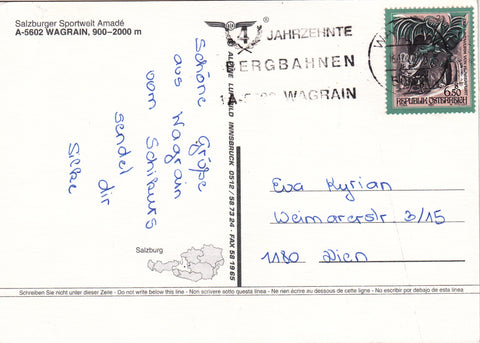 Salzburger Sportwelt Amadé
A-5602 WAGRAIN, 900–2000 m
Schöne Grüße
aus Wagrain
vom Schikurs
sendet dir
Silke
4 JAHRZEHNTE
BERGBAHNEN
WAGRAIN
6.50
REPUBLIK ÖSTERREICH
INNSBRUCK 0512/58 73 24 · FAX 58 19 65
Eva Kyrian
Weimarerstr 3/15
1180 Wien
Salzburg
Schreiben Sie nicht unter dieser Zeile - Do not write below this line - Non scrivere sotto questa linea - Ne rien écrire au dessous de cette ligne - No escribir por debajo de esta linea